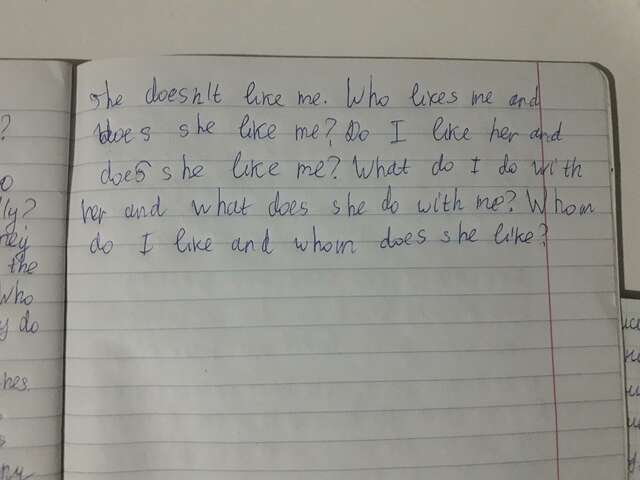 she doesn't like me. Who likes me and
does she like me? Do I like her and
does she like me? What do I do with
her and what does she do with me? Whom
do I like and whom does she like?
?
ly?
they
the
Who
do